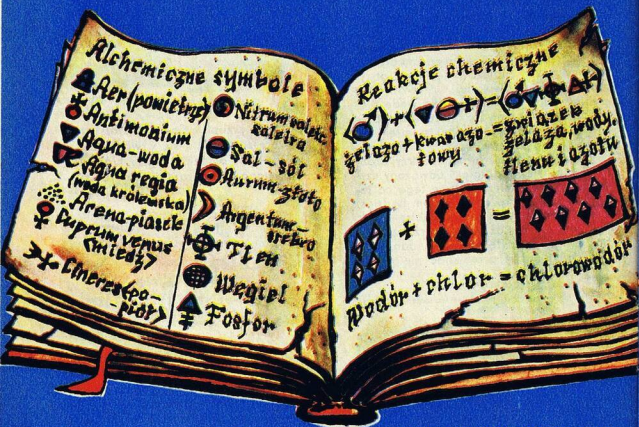 Alchemiczne symbole
Aer (powietrze)
Antimonium
Aqua-woda
Aqua regia
(woda królewska)
Arena-piasek
Cuprum venus
(miedź)
Cineres (po-
piół)
Nitrum
saletra
Sol - sól
Aurum-złoto
Argentum-
srebro
Tlen
Węgiel
Fosfor
Reakcje chemiczne
( ) + ( ) = ( + )
żelazo + kwas azo- = związek
towy żelaza, wody,
tlenu i azotu
+ =
Wodór + chlor = chlorowodór